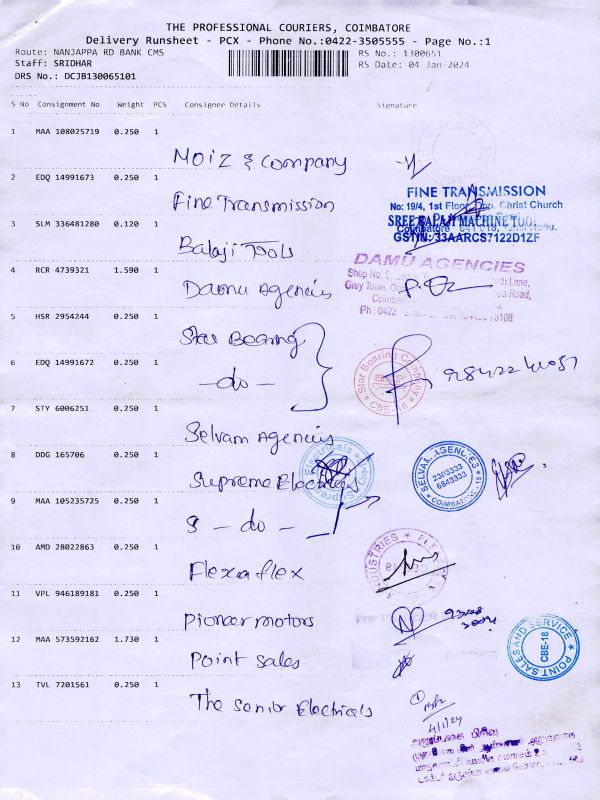 THE PROFESSIONAL COURIERS, COIMBATORE
Delivery Runsheet - PCX - Phone No.:0422-3505555 - Page No.:1
Route: NANJAPPA RD BANK CMS
RS No.: 1300651
Staff: SRIDHAR
RS Date: 04-Jan-2024
DRS No.: DCJB130065101
S No Consignment No Weight PCS Consignee Details Signature
1 MAA 108025719 0.250 1
Moiz & Company
2 EDQ 14991673 0.250 1
Fine Transmission
FINE TRANSMISSION
No: 19/4, 1st Floor, Opp. Christ Church
3 SLM 336481280 0.120 1
SREE BALAJI MACHINE TOOL
Coimbatore
GSTIN: 33AARCS7122D1ZF
Balaji Tools
DAMU AGENCIES
4 RCR 4739321 1.590 1
Shop No.
Lane,
Damu Agencies
Grey Town,
Road,
Ph.: 0422
5 HSR 2954244 0.250 1
Star Bearing
Star Bearing Company
CBE-18
6 EDQ 14991672 0.250 1
- do -
7 STY 6006251 0.250 1
Selvam Agencies
8 DDG 165706 0.250 1
Supreme Electricals
SELVAM AGENCIES
2303333
6643333
COIMBATORE-18
9 MAA 105235725 0.250 1
- do -
10 AMD 28022863 0.250 1
Flexaflex
11 VPL 946189181 0.250 1
Pioneer motors
12 MAA 573592162 1.730 1
Point Sales
POINT SALES AND SERVICE
CBE-18
13 TVL 7201561 0.250 1
The Senior Electricals
4/1/24